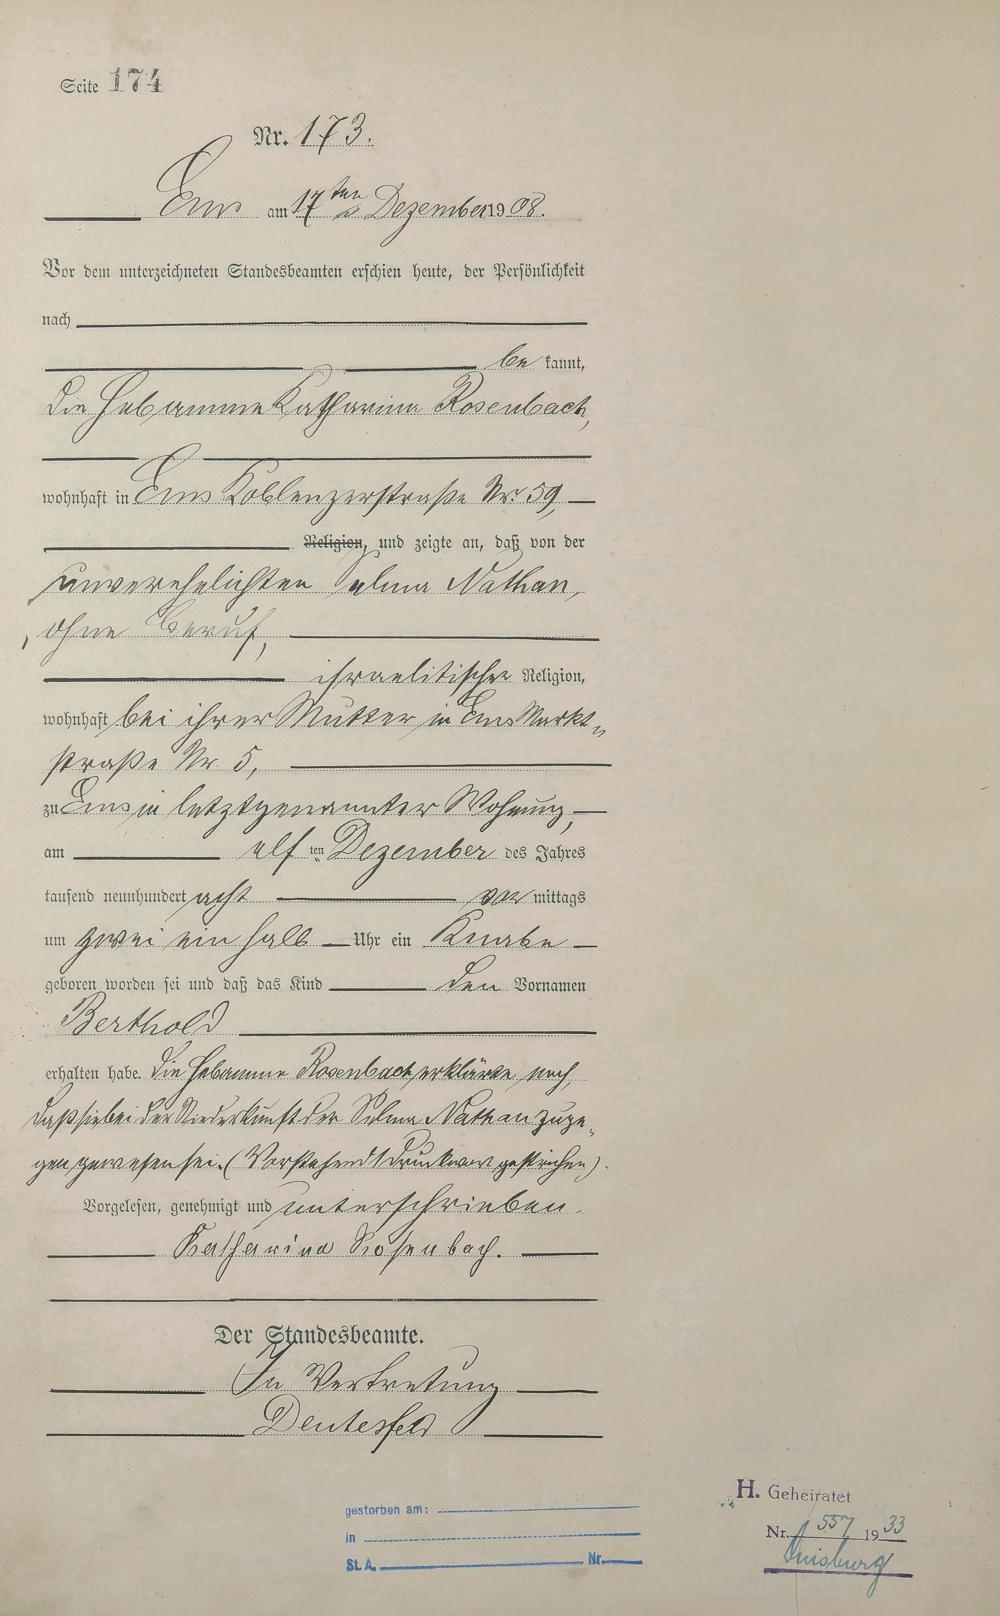 Seite 174
Nr. 173.
Ems am 17ten Dezember 1908.
Vor dem unterzeichneten Standesbeamten erschien heute, der Persönlichkeit
nach
be kannt,
die Hebamme Katharina Rosenbach,
wohnhaft in Ems Koblenzerstraße Nr. 59,
Religion, und zeigte an, daß von der
unverehelichten Selma Nathan,
ohne Beruf,
israelitischer Religion,
wohnhaft bei ihrer Mutter in Ems Markt„
straße Nr. 5,
zu Ems in letztgenannter Wohnung,
am elf ten Dezember des Jahres
tausend neunhundert acht vor mittags
um zwei ein halb Uhr ein Knabe
geboren worden sei und daß das Kind den Vornamen
Berthold
erhalten habe. Die Hebamme Rosenbach erklärte noch,
daß sie bei der Niederkunft der Selma Nathan zuge„
gen gewesen sei. (Vorstehend 1 Druckwort gestrichen).
Vorgelesen, genehmigt und unterschrieben.
Katharina Rosenbach.
Der Standesbeamte.
In Vertretung
gestorben am:
in
St. A. Nr.
H. Geheiratet
Nr. 557 1933
Duisburg